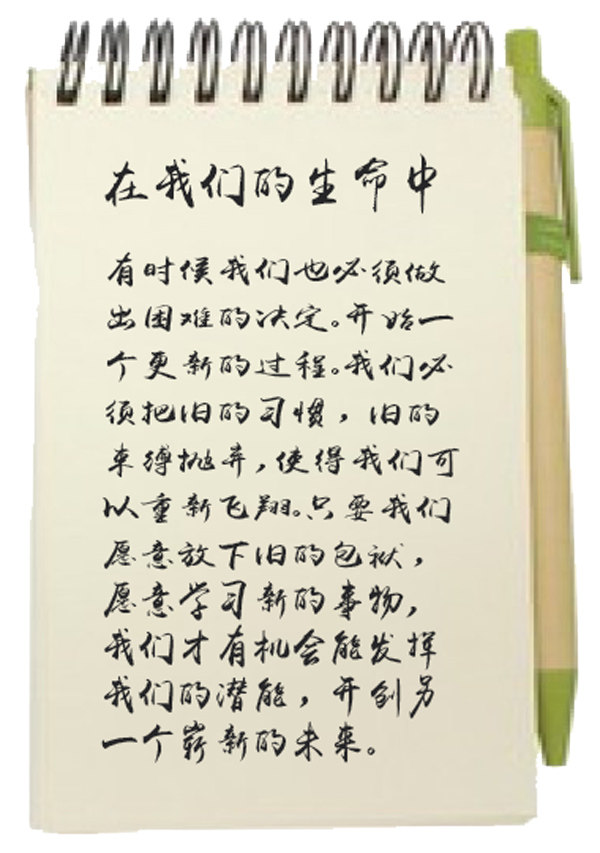 在我们的生命中
有时候我们也必须做
出困难的决定。开始一
个更新的过程。我们必
须把旧的习惯，旧的
束缚抛弃，使得我们可
以重新飞翔。只要我们
愿意放下旧的包袱，
愿意学习新的事物，
我们才有机会能发挥
我们的潜能，开创另
一个崭新的未来。